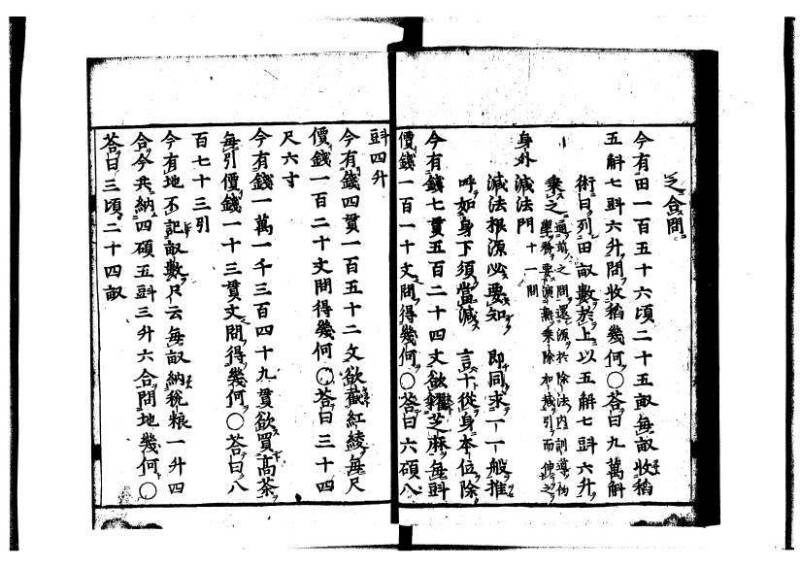 之合問
今有田一百五十六頃二十五畝每畝收稻
五斛七㪷六升問收稻幾何〇荅曰九萬斛
術曰列田畝數於上以五斛七㪷六升
乘之
身外減法門 十一問
減法根源必要知 即同求一一般推
呼如身下須當減 言十從身本位除
今有錢七貫五百二十四文欲糴芝麻每㪷
價錢一百一十文問得幾何〇荅曰六碩八
㪷四升
今有錢四貫一百五十二文欲截紅綾每尺
價錢一百二十文問得幾何〇荅曰三十四
尺六寸
今有錢一萬一千三百四十九貫欲買高茶
每引價錢一十三貫文問得幾何〇荅曰八
百七十三引
今有地不記畝數只云每畝納稅粮一升四
合今共納四碩五㪷三升六合問地幾何〇
荅曰三頃二十四畝